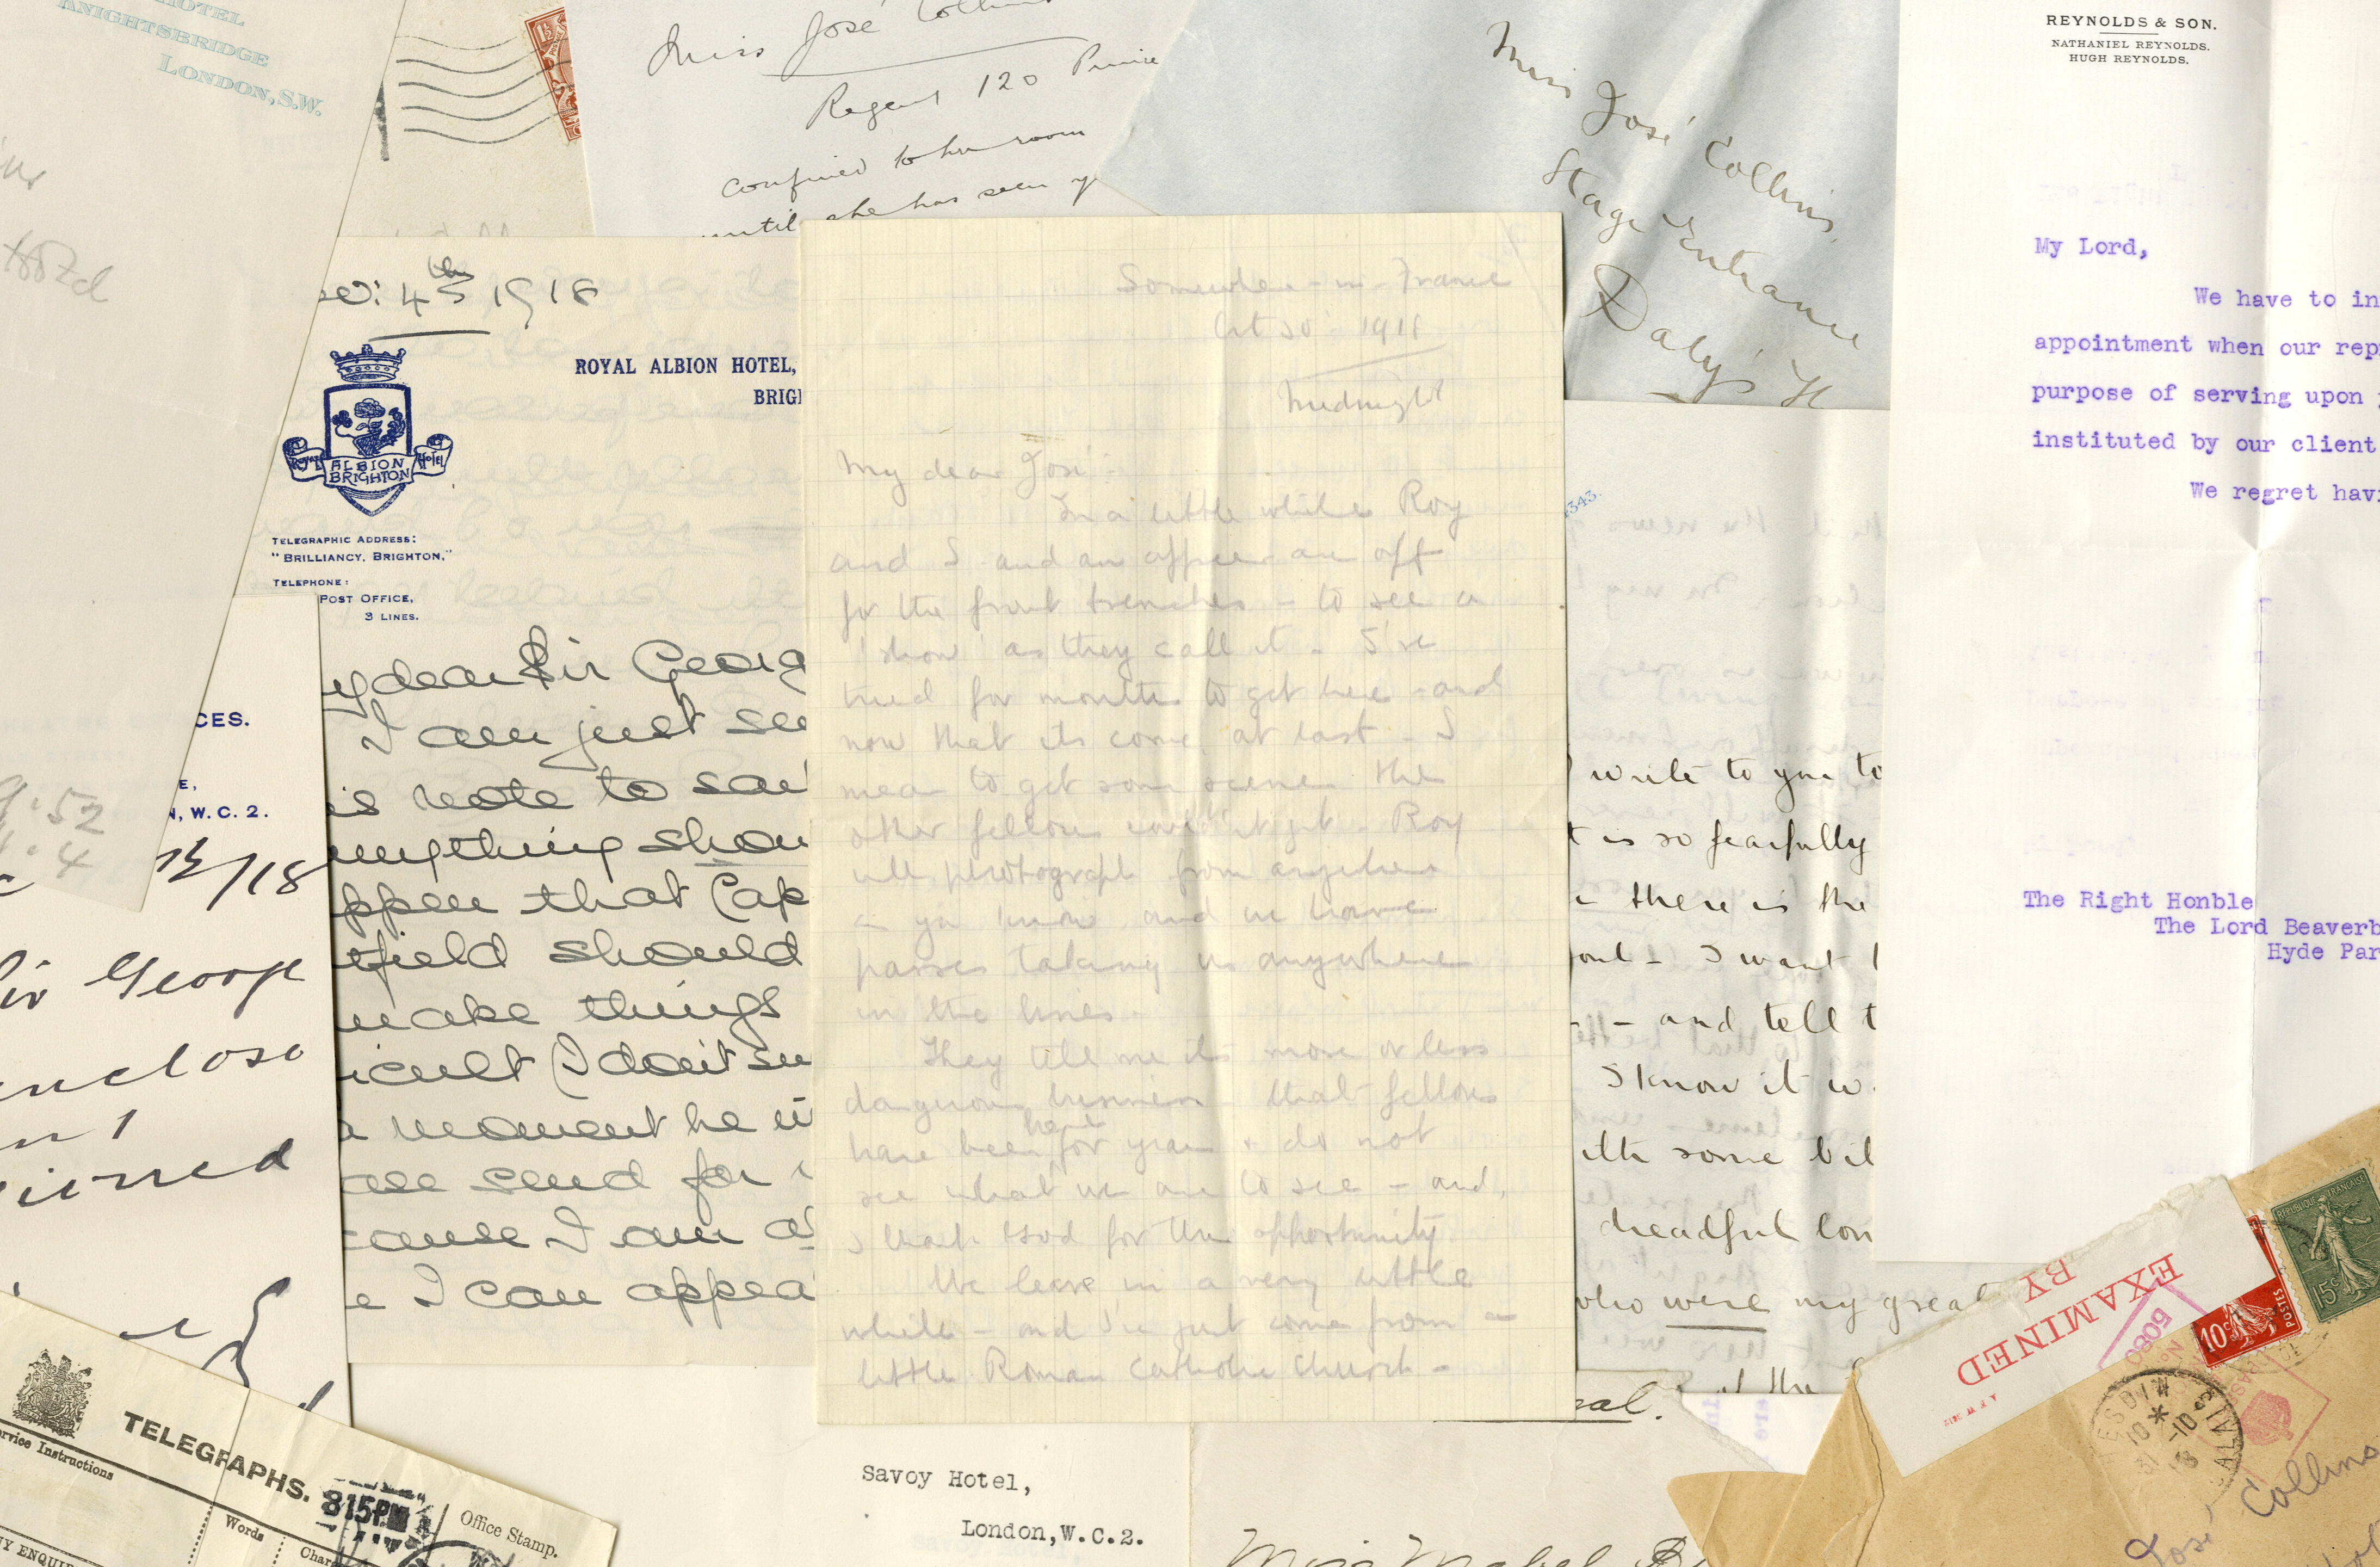 HOTEL
KNIGHTSBRIDGE
LONDON, S.W.
Miss José Collins
Regent 120
confined to her room
until she has seen
Miss José Collins
Stage Entrance
Daly's
REYNOLDS & SON.
NATHANIEL REYNOLDS.
HUGH REYNOLDS.
My Lord,
We have to in
appointment when our rep
purpose of serving upon
instituted by our client
We regret havi
The Right Honble
The Lord Beaverb
Hyde Par
4th 1918
ROYAL ALBION HOTEL,
BRIGH
ROYAL ALBION HOTEL
BRIGHTON
TELEGRAPHIC ADDRESS:
"BRILLIANCY, BRIGHTON,"
TELEPHONE:
POST OFFICE,
3 LINES.
y dear Sir Georg
I am just se
is note to sa
anything shou
ppen that Cap
field should
make things
icult (I don't see
a moment he
ase send for
cause I am
e I can appea
Somewhere-in-France
Oct 30 1918
Midnight
My dear José-
In a little while Roy
and I and an officer are off
for the front trenches - to see a
'show' as they call it - I've
tried for months to get here - and
now that its come at last - I
mean to get some scenes the
other fellows couldn't get. Roy
will photograph from anywhere
as you know and we have
passes taking us anywhere
in the lines -
They tell me its more or less
dangerous business - that fellows
have been here for years & do not
see what we are to see - and
I thank God for the opportunity
We leave in a very little
while - and I've just come from a
little Roman Catholic Church -
343.
write to you to
is so fearfully
there is the
I want
- and tell t
I know it w
ith some bit
dreadful lon
who were my great
of the
CES.
E,
N, W.C. 2.
/18
Sir George
enclose
9.52
4
TELEGRAPHS.
Service Instructions
Words
Char
815PM
Office Stamp.
NY ENQUI
Savoy Hotel,
London, W.C.2.
Miss Mabel
EXAMINED
BY
5080
REPUBLIQUE FRANÇAISE
15c
10c
POSTES
HESDIN
10 *
31 -10
18
José Collins